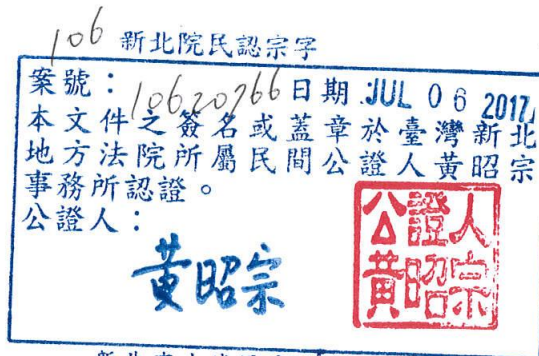 106 新北院民認宗字
案號：10620766 日期 JUL 06 2017
本文件之簽名或蓋章於臺灣新北
地方法院所屬民間公證人黃昭宗
事務所認證。
公證人：
黃昭宗
公證人
黃昭宗